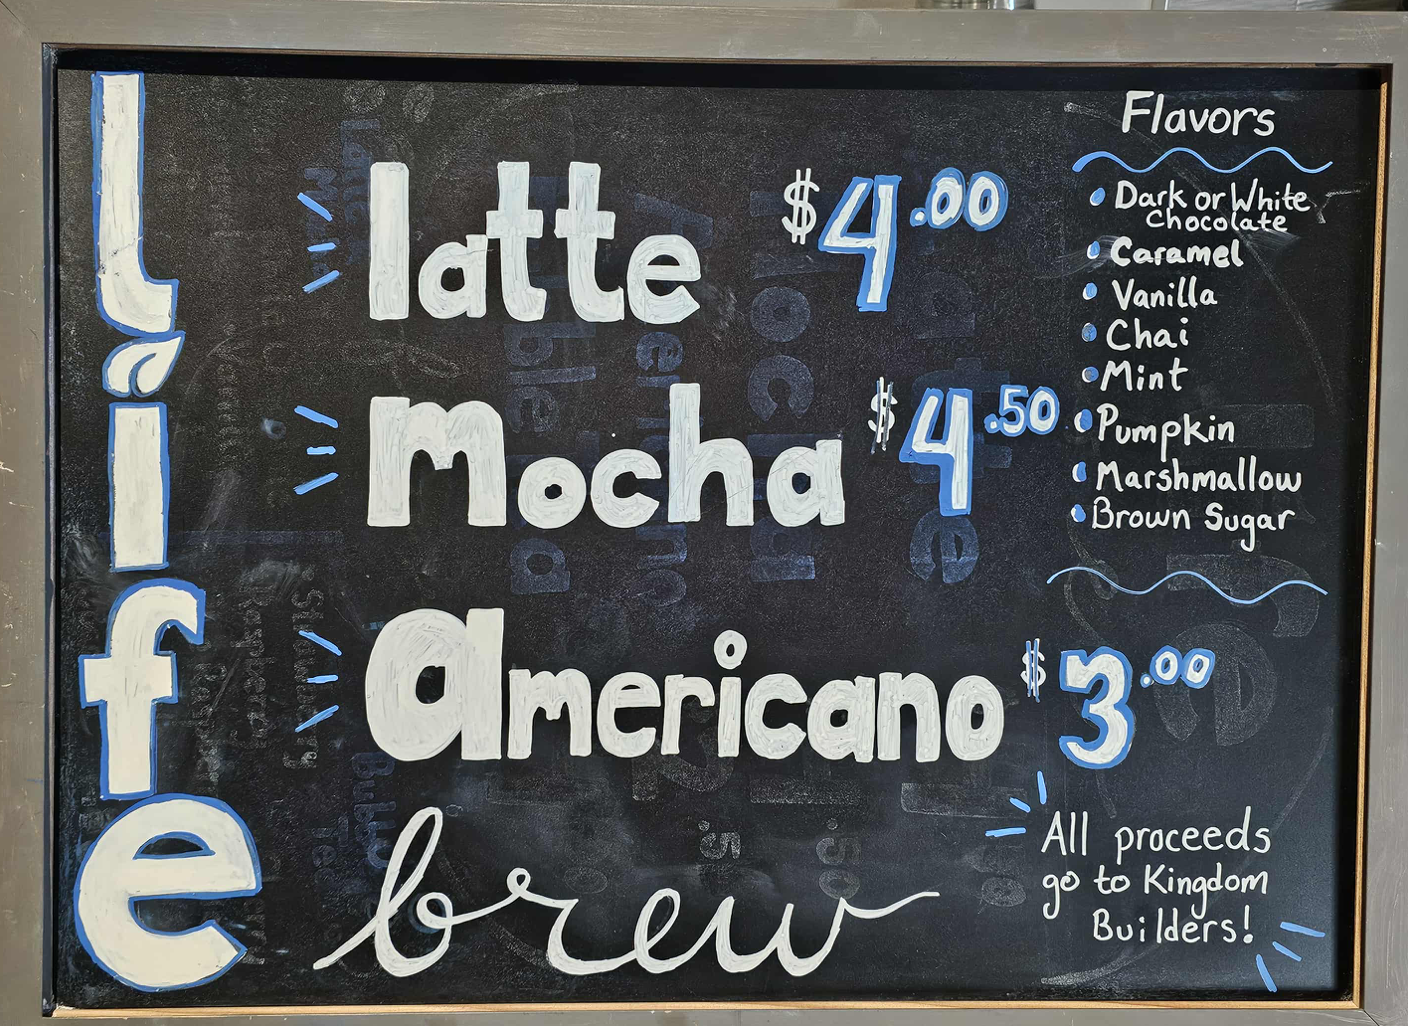 life
latte $4.00
Mocha $4.50
Americano $3.00
brew
Flavors
Dark or White
Chocolate
Caramel
Vanilla
Chai
Mint
Pumpkin
Marshmallow
Brown Sugar
All proceeds
go to Kingdom
Builders!